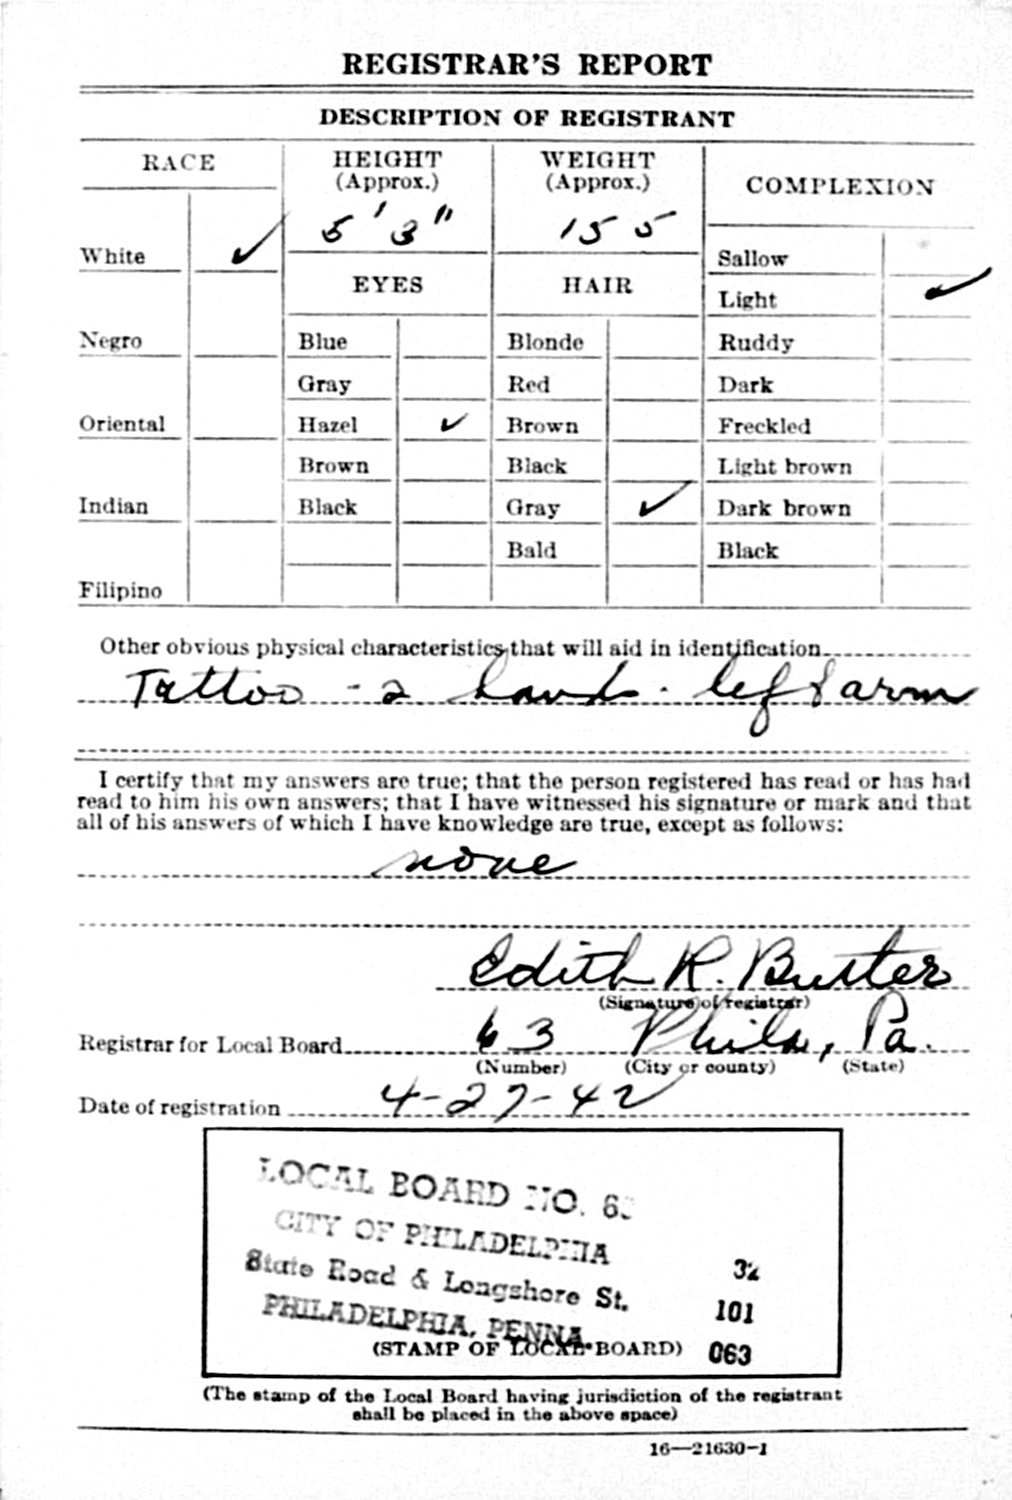 REGISTRAR'S REPORT
DESCRIPTION OF REGISTRANT
RACE
HEIGHT
(Approx.)
WEIGHT
(Approx.)
COMPLEXION
5' 3"
155
White ✓
Sallow
EYES
HAIR
Light ✓
Negro
Blue
Blonde
Ruddy
Gray
Red
Dark
Oriental
Hazel ✓
Brown
Freckled
Brown
Black
Light brown
Indian
Black
Gray ✓
Dark brown
Bald
Black
Filipino
Other obvious physical characteristics that will aid in identification
Tattoo - 2 left arm
I certify that my answers are true; that the person registered has read or has had
read to him his own answers; that I have witnessed his signature or mark and that
all of his answers of which I have knowledge are true, except as follows:
none
Edith R. Butter
(Signature of registrar)
Registrar for Local Board 63 Phila, Pa.
(Number) (City or county) (State)
Date of registration 4-27-42
LOCAL BOARD NO. 63
CITY OF PHILADELPHIA
State Road & Longshore St.
PHILADELPHIA, PENNA.
32
101
063
(STAMP OF LOCAL BOARD)
(The stamp of the Local Board having jurisdiction of the registrant
shall be placed in the above space)
16—21630-1